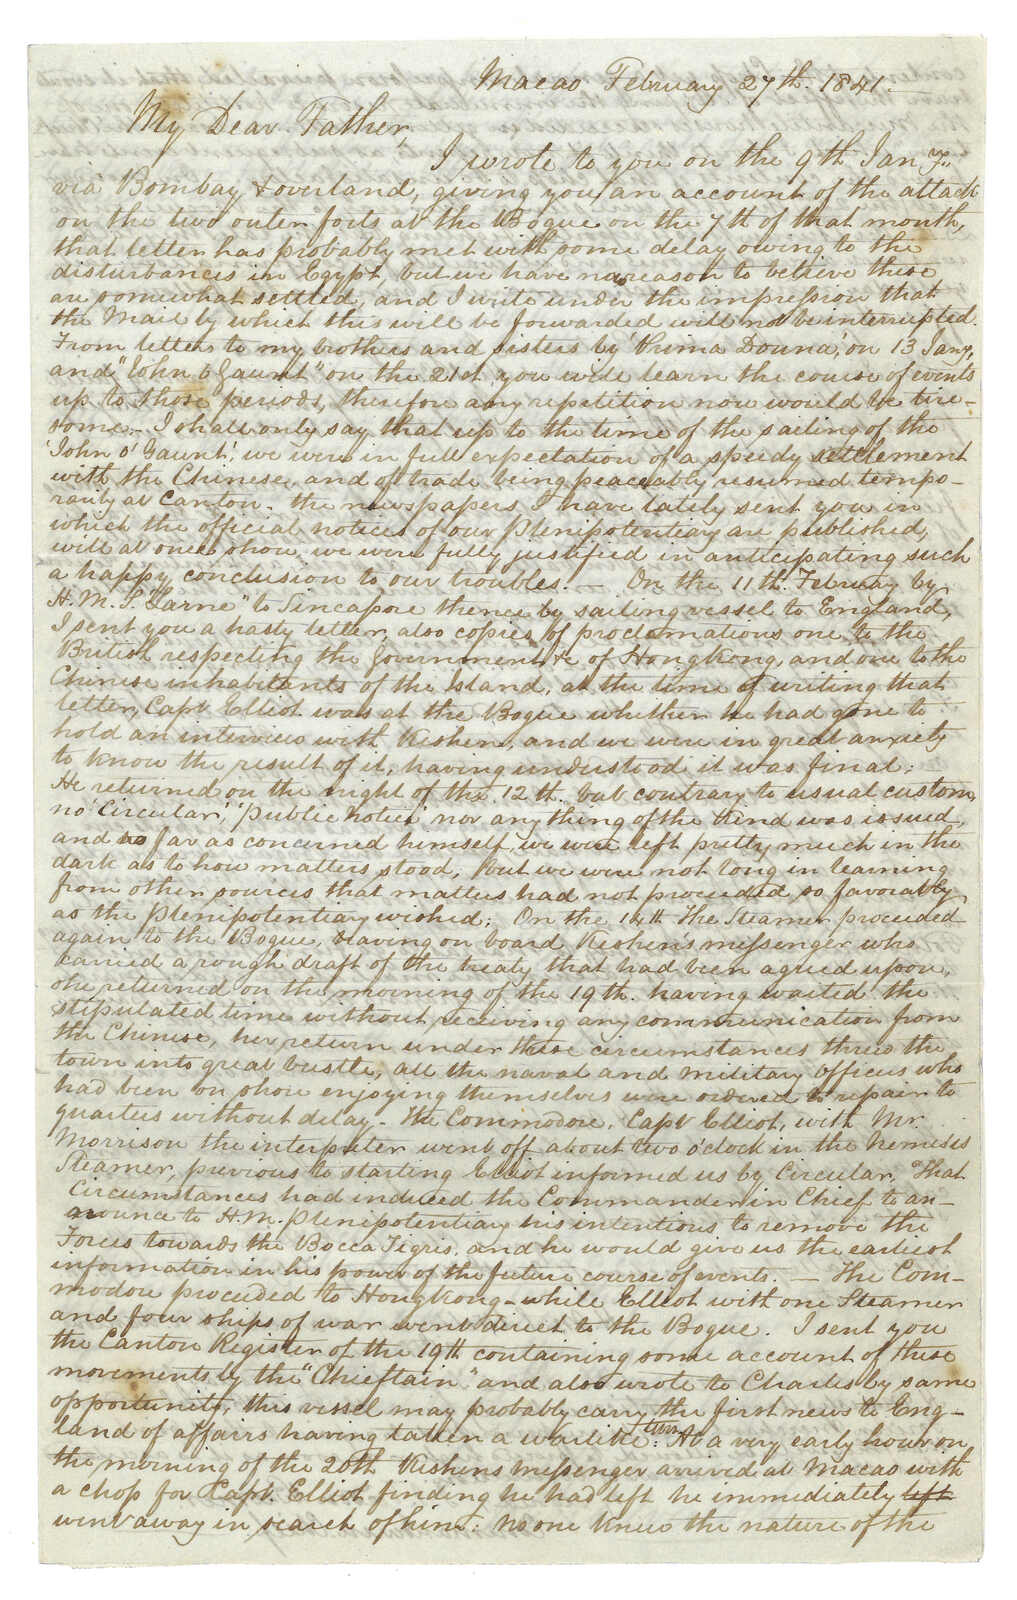 Macao February 27th. 1841.
My Dear Father,
I wrote to you on the 9th Jany..
via Bombay & overland, giving you an account of the attack
on the two outer forts at the Bogue on the 7th of that month,
that letter has probably met with some delay owing to the
disturbances in Egypt, but we have no reason to believe these
are somewhat settled, and I write under the impression that
the Mail by which this will be forwarded will not be interrupted.
From letters to my brothers and sisters by 'Prima Donna', on 13 Jany,
and "John O Gaunt" on the 21st you will learn the course of events
up to those periods, therefore any repetition now would be tire-
some.- I shall only say that up to the time of the sailing of the
'John O' Gaunt', we were in full expectation of a speedy settlement
with the Chinese, and of trade being peaceably resumed tempo-
rarily at Canton. the newspapers I have lately sent you in
which the official notices of our Plenipotentiary are published,
will at once show, we were fully justified in anticipating such
a happy conclusion to our troubles. — On the 11th. February by
H. M. S. "Larne" to Sincapore thence by sailing vessel to England,
I sent you a hasty letter, also copies of proclamations one to the
British respecting the Government &c of Hongkong, and one to the
Chinese inhabitants of the Island, at the time of writing that
letter, Capt Elliot was at the Bogue whether he had gone to
hold an interview with Keshen, and we were in great anxiety
to know the result of it, having understood it was final;
He returned on the night of the 12th. but contrary to usual custom,
no 'Circular', 'Public Notice' nor any thing of the kind was issued,
and so far as concerned himself, we were left pretty much in the
dark as to how matters stood, but we were not long in learning
from other sources that matters had not proceeded so favorably
as the Plenipotentiary wished; On the 14th The Steamer proceeded
again to the Bogue, having on board Keshen's messenger who
carried a rough draft of the treaty that had been agreed upon,
she returned on the morning of the 19th. having waited the
stipulated time without receiving any communication from
the Chinese, her return under these circumstances threw the
town into great bustle, all the naval and Military Officers who
had been on shore enjoying themselves were ordered to repair to
quarters without delay - The Commodore, Capt Elliot, with Mr.
Morrison the interpreter went off about two o'clock in the Nemesis
Steamer, previous to starting Elliot informed us by Circular, "That
Circumstances had induced the Commander in Chief to an-
nounce to H.M. Plenipotentiary his intentions to remove the
Forces towards the Bocca Tigris, and he would give us the earliest
information in his power of the future course of events. — The Com-
modore proceeded to Hongkong - while Elliot with one Steamer
and four ships of war went direct to the Bogue. I sent you
the Canton Register of the 19th containing some account of these
movements by the "Chieftain" and also wrote to Charles by same
opportunity, this vessel may probably carry the first news to Eng-
land of affairs having taken a warlike turn; At a very early hour on
the morning of the 20th Keshens messenger arrived at Macao with
a chop for Capt. Elliot finding he had left he immediately left
went away in search of him: no one knew the nature of the